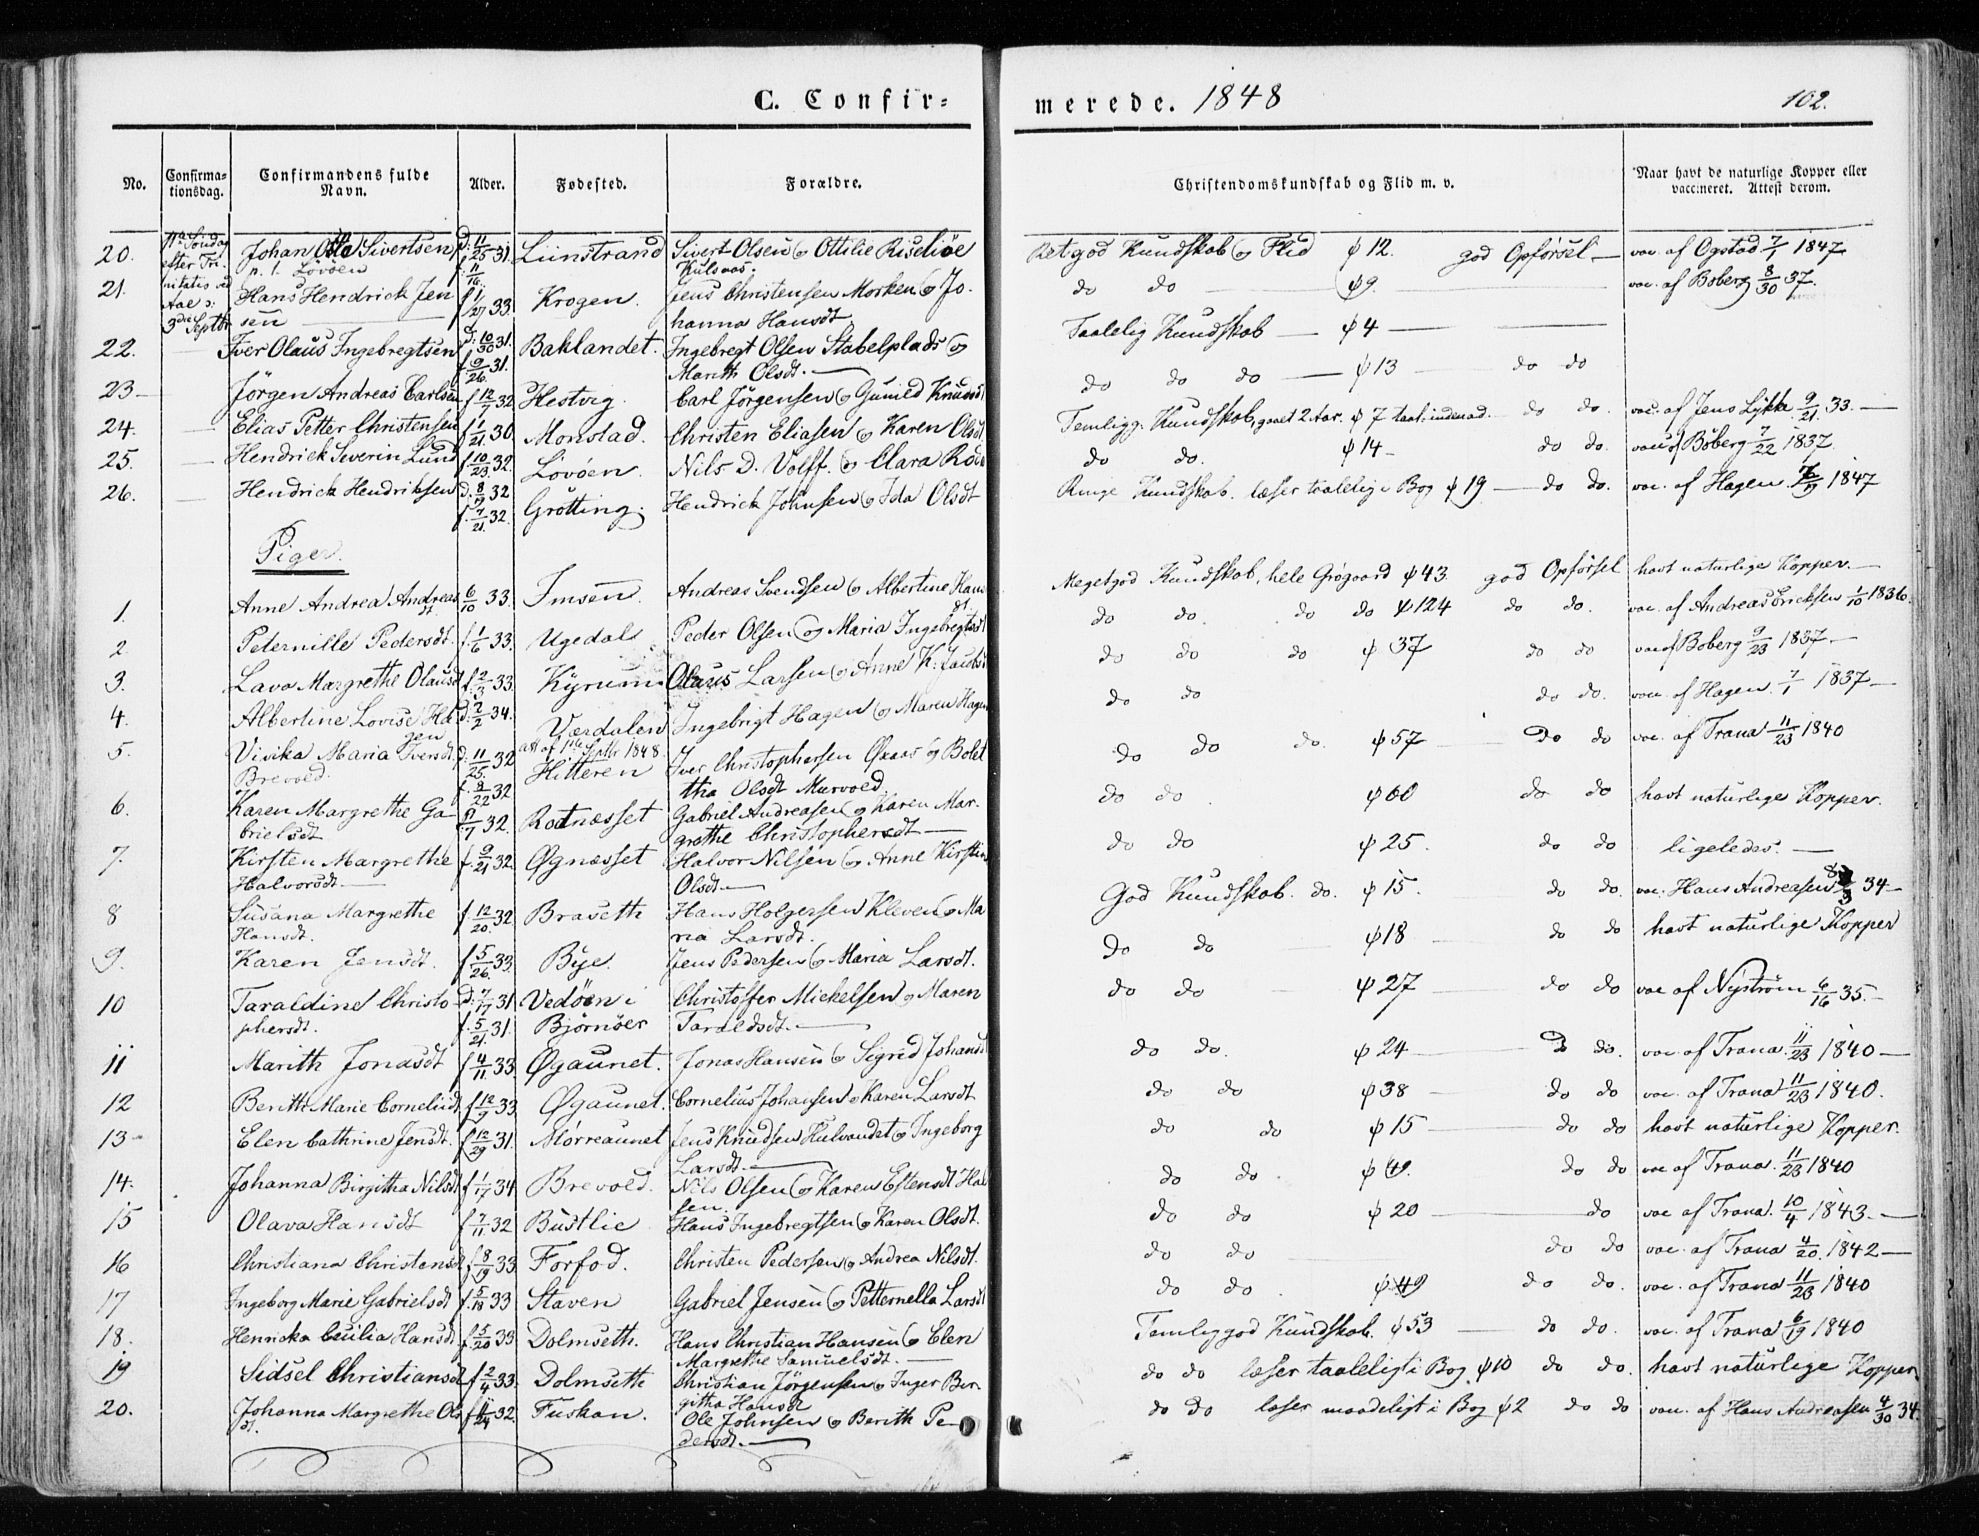 C. Confir=
merede. 1848
102.
No. Confirma=tionsdag. Confirmandens fulde Navn. Alder. Fødested. Forældre. Christendomskundskab og Flid m. v. Naar havt de naturlige Kopper eller vaccineret. Attest derom.
20. Søndag efter Trinitatis ved 3die Septbr
Johan Sivertsen d: 11/25 31. Liinstrand Sivert Olsen og Ottilie
Lövöen f: 11/16.
Retgod Kundskab og Flid ϕ 12. god Opførsel — vac. af Ogstad 7/1 1847
21. Hans Hendrick Jensen f 1/27 33. Krogen. Jens Christensen Morken og Johanna Hansdt
do do ϕ 9. vac. af Boberg 8/30 37.
22. Iver Olaus Ingebregtsen d: 10/30 31. f 9/26. 31. Baklandet. Ingebregt Olsen Stabelplads og Marith Olsdt. —
Taalelig Kundskab — ϕ 4 —
23 — Jörgen Andreas Carlsen f 12/7 32 Hestvig. Carl Jörgensen og Gunild
do do do — ϕ 13 do do
24. Elias Petter Christensen f 1/21. 30. Monstad. Christen Eliasen og Karen Olsdt
Temligg. Kundskab, gaaet 2 Aar. ϕ 7 taal. indenad. do do. vac. af Jens Lykke 9/21. 33. —
25. Hendrick Severin Lund f 10/23 32. Lövöen. Nils D. Volff. og Clara
do do. ϕ 14 — do do. vac. af Boberg 7/22 1837.
26. Hendrick Hendriksen d. 8/17 32 f. 7/21. 32. Grötting. Hendrick Johnsen og Ida Olsdt
Ringe Kundskab. læser taalelig i Bog ϕ 19 — do do. vac. af Hagen. 1847
Piger.
1. Anne Andrea Andreasdt 6/10 33. Imsen. Andreas Svendsen og Albertine Hansdt
Megetgod Kundskab, hele Grøgaard ϕ 43. god Opførsel havt naturlige Kopper. —
2 Peternille Pedersdt. f. 1/6 33. Ugedal Peder Olsen og Maria Ingebregtsdt
do do. do do ϕ 124 do do. vac. af Andreas Ericksen 1/10 1836.
3. Lava Margrethe Olausd f 2/3 33. Kyrum Olaus Larsen og Anne K: Jacobsd
do do do ϕ 37 do do vac. af Boberg 9/23 1837 —
4. Albertine Lovise Hagen d: 2/2 34. Værdalen Ingebrigt Hagen og Maren Hagen
att af 1ste Septbr 1848
do do do do. vac. af Hagen. 7/1 1837 —
5. Vivika Maria Iversdt. Brevold. d: 11/25. 32 f. 9/22 32 Hitteren Iver Christophersen Øxaas og Boletha Olsdt
do do do. ϕ 57 — Do do vac. af Trana 11/23 1840
6. Karen Margrethe Gabrielsdt 32. Rotnæsset Gabriel Andreasen og Karen Margrethe Christophersdt —
do do. ϕ 60 do do havt naturlige Kopper.
7. Kirsten Margrethe Halvorsdt — f. 9/21 32 Øgnæsset Halvor Nilsen og Anne Kirstin Olsdt. —
do do ϕ 25. do do ligeledes. —
8 Susana Margrethe Hansdt. f. 12/20. 32 Braseth Hans Holgersen Kleven og Maria Larsdt.
God Kundskab. do. ϕ 15. do do. vac. Hans Andreasen 34 —
9. Karen Jensdt. f 5/26. 33. Bye. Jens Pedersen og Maria Larsdt.
Do do ϕ 18 do do havt naturlige Kopper
10 Taraldine Christophersdt. d: 7/17 31 f. 5/21. 31. Vedöen i Björnöer Christoffer Mickelsen og Maren Taraldsdt. —
do do ϕ 27 do do vac af Nyström 6/16 35. —
11 Marith Jonasdt f 4/11. 33. Øgaunet. Jonas Hansen og Sigrid Johansd
do do. ϕ 24 do. vac. af Trana. 11/23 1840 —
12 Berith Marie Corneliusd f 12/9 33. Øgaunet. Cornelius Johansen og Karen Larsdt
do do ϕ 38 do do vac. af Trana 11/23 1840.
13 — Elen Cathrine Jensdt. f 12/29 31. Mörreaunet Jens Knudsen Hulvandet og Ingeborg Larsdt. —
do do ϕ 15 — do do havt naturlige Kopper.
14. Johanna Birgitha Nilsdt f 1/17 34 Brevold. Nils Olsen og Karen Estensdt Halsen.
do do. ϕ 49. do do vac af Trana. 11/23 1840
15 Olava Hansdt f 7/11 32 Bustlie Hans Ingebregtsen og Karen Olsdt.
do do ϕ 20 — do vac af Trana. 10/4 1843. —
16 Christiana Christensdt f 8/19 33 Forfod. Christen Pedersen og Andrea Nilsdt.
do do do do vac. af Trana 4/20. 1842 —
17 Ingeborg Marie Gabrielsdt f. 5/18 33 Staven Gabriel Jensen og Petternella Larsdt
do do. ϕ 49 do do. vac. af Trana 11/23 1840
18. Henricka Cecilia Hansdt f 5/20 33 Dolmseth. Hans Christian Hansen og Elen Margrethe Samuelsdt. —
Temlig god Kundskab. ϕ 53 — do do. vac. af Trana 6/19 1840
19 Sidsel Christiansd f 2/4 33. Dolmseth Christian Jörgensen og Inger Bergitha Hansdt
do do læser taaleligt i Bog ϕ 10 do do. havt naturlige Kopper
20. Johanna Margrethe Olsdt. f 11/24 32. Fuskan. Ole Johnsen og Berith Pedersdt. —
do do læser maadeligt i Bog ϕ 2 do do vac. af Hans Andreasen 4/30 34.